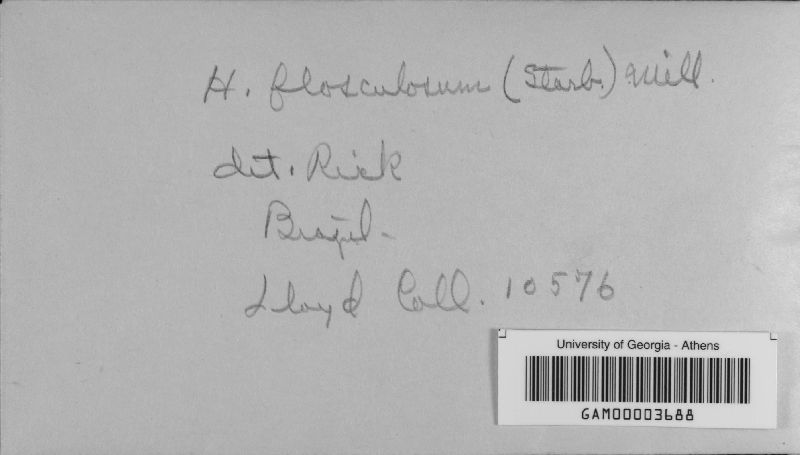 H. flosculosum (Starb.) Mill.
det. Rick
Brazil.
Lloyd Coll. 10576
University of Georgia - Athens
GAM00003688